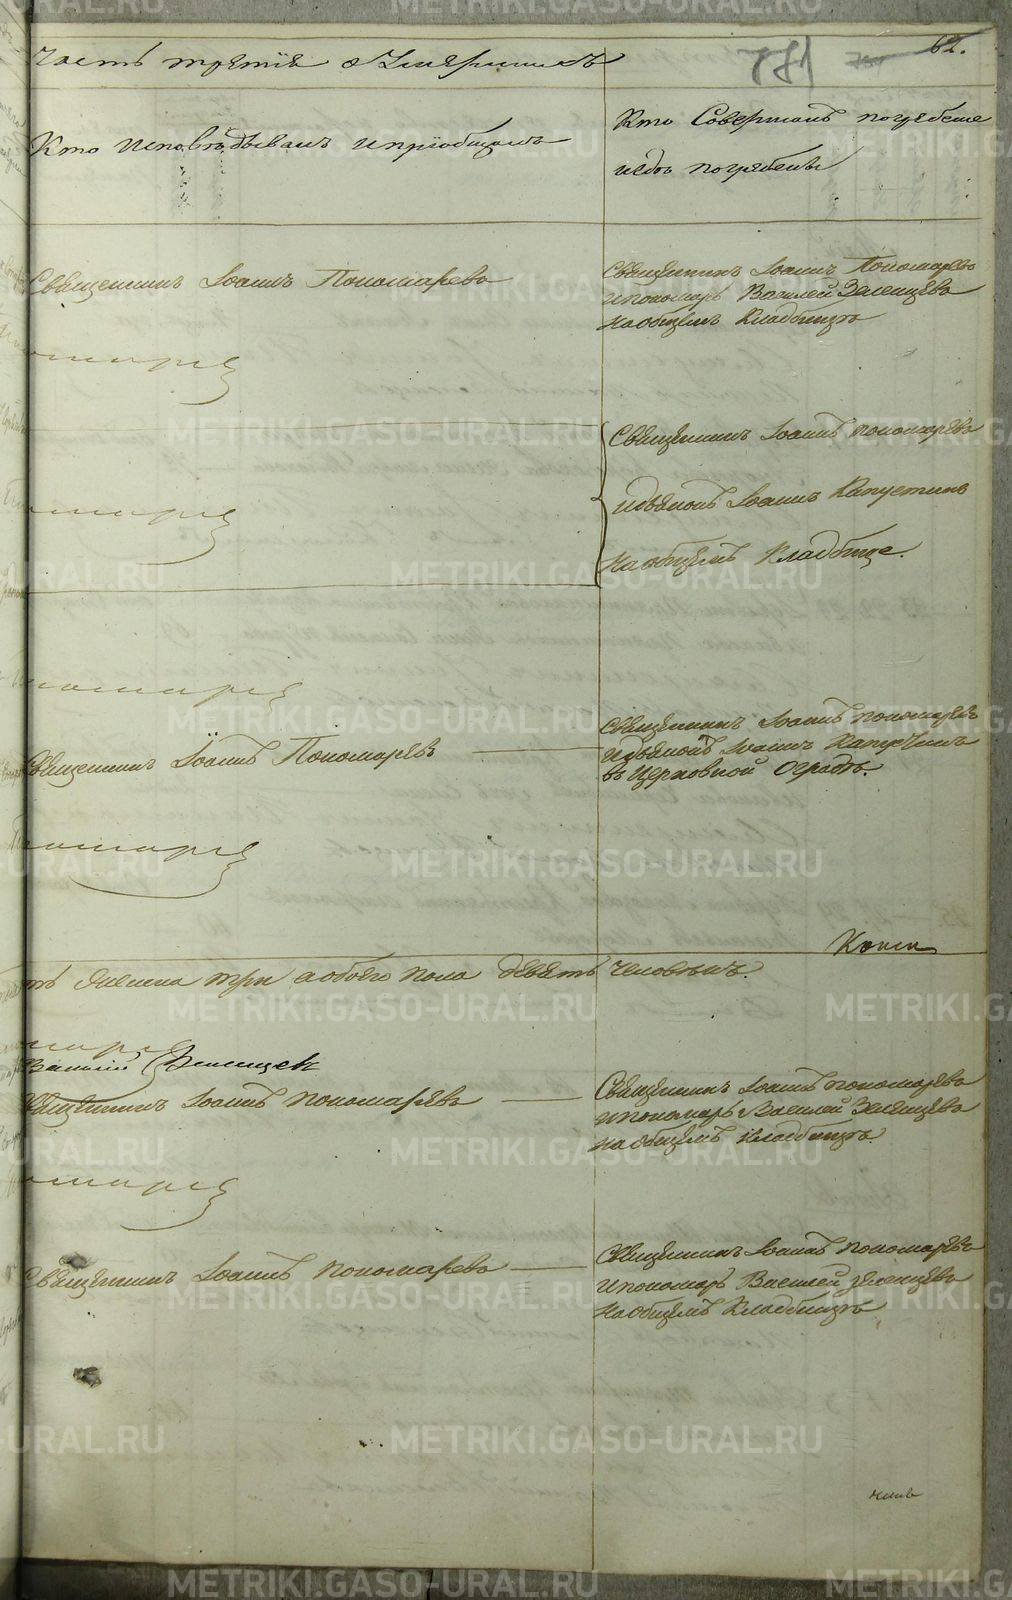 Часть третiя о Умершихъ
781
62.
Кто Исповѣдывалъ и прiобщалъ
Кто Совершалъ погребенiе
и гдѣ погребены
Священникъ Iоаннъ Пономаревъ
Священникъ Iоаннъ Пономаревъ
и пономарь Василей Зеленцевъ
на общемъ Кладбищѣ
Священникъ Iоаннъ пономаревъ
и дьяконъ Iоаннъ Капустинъ
на общемъ Кладбище.
Священникъ Iоаннъ Пономаревъ
Священникъ Iоаннъ пономаревъ
и дьяконъ Iоаннъ Капустинъ
въ Церковной Оградѣ.
женска три а обоего пола девять человѣкъ.
Василiй Зеленцевъ
Священникъ Iоаннъ пономаревъ
Священникъ Iоаннъ пономаревъ
и пономарь Василей Зеленцевъ
на общемъ кладбищѣ.
Священникъ Iоаннъ пономаревъ
Священникъ Iоаннъ пономаревъ
и пономарь Василей зеленцевъ
на общемъ Кладбищѣ
METRIKI.GASO-URAL.RU